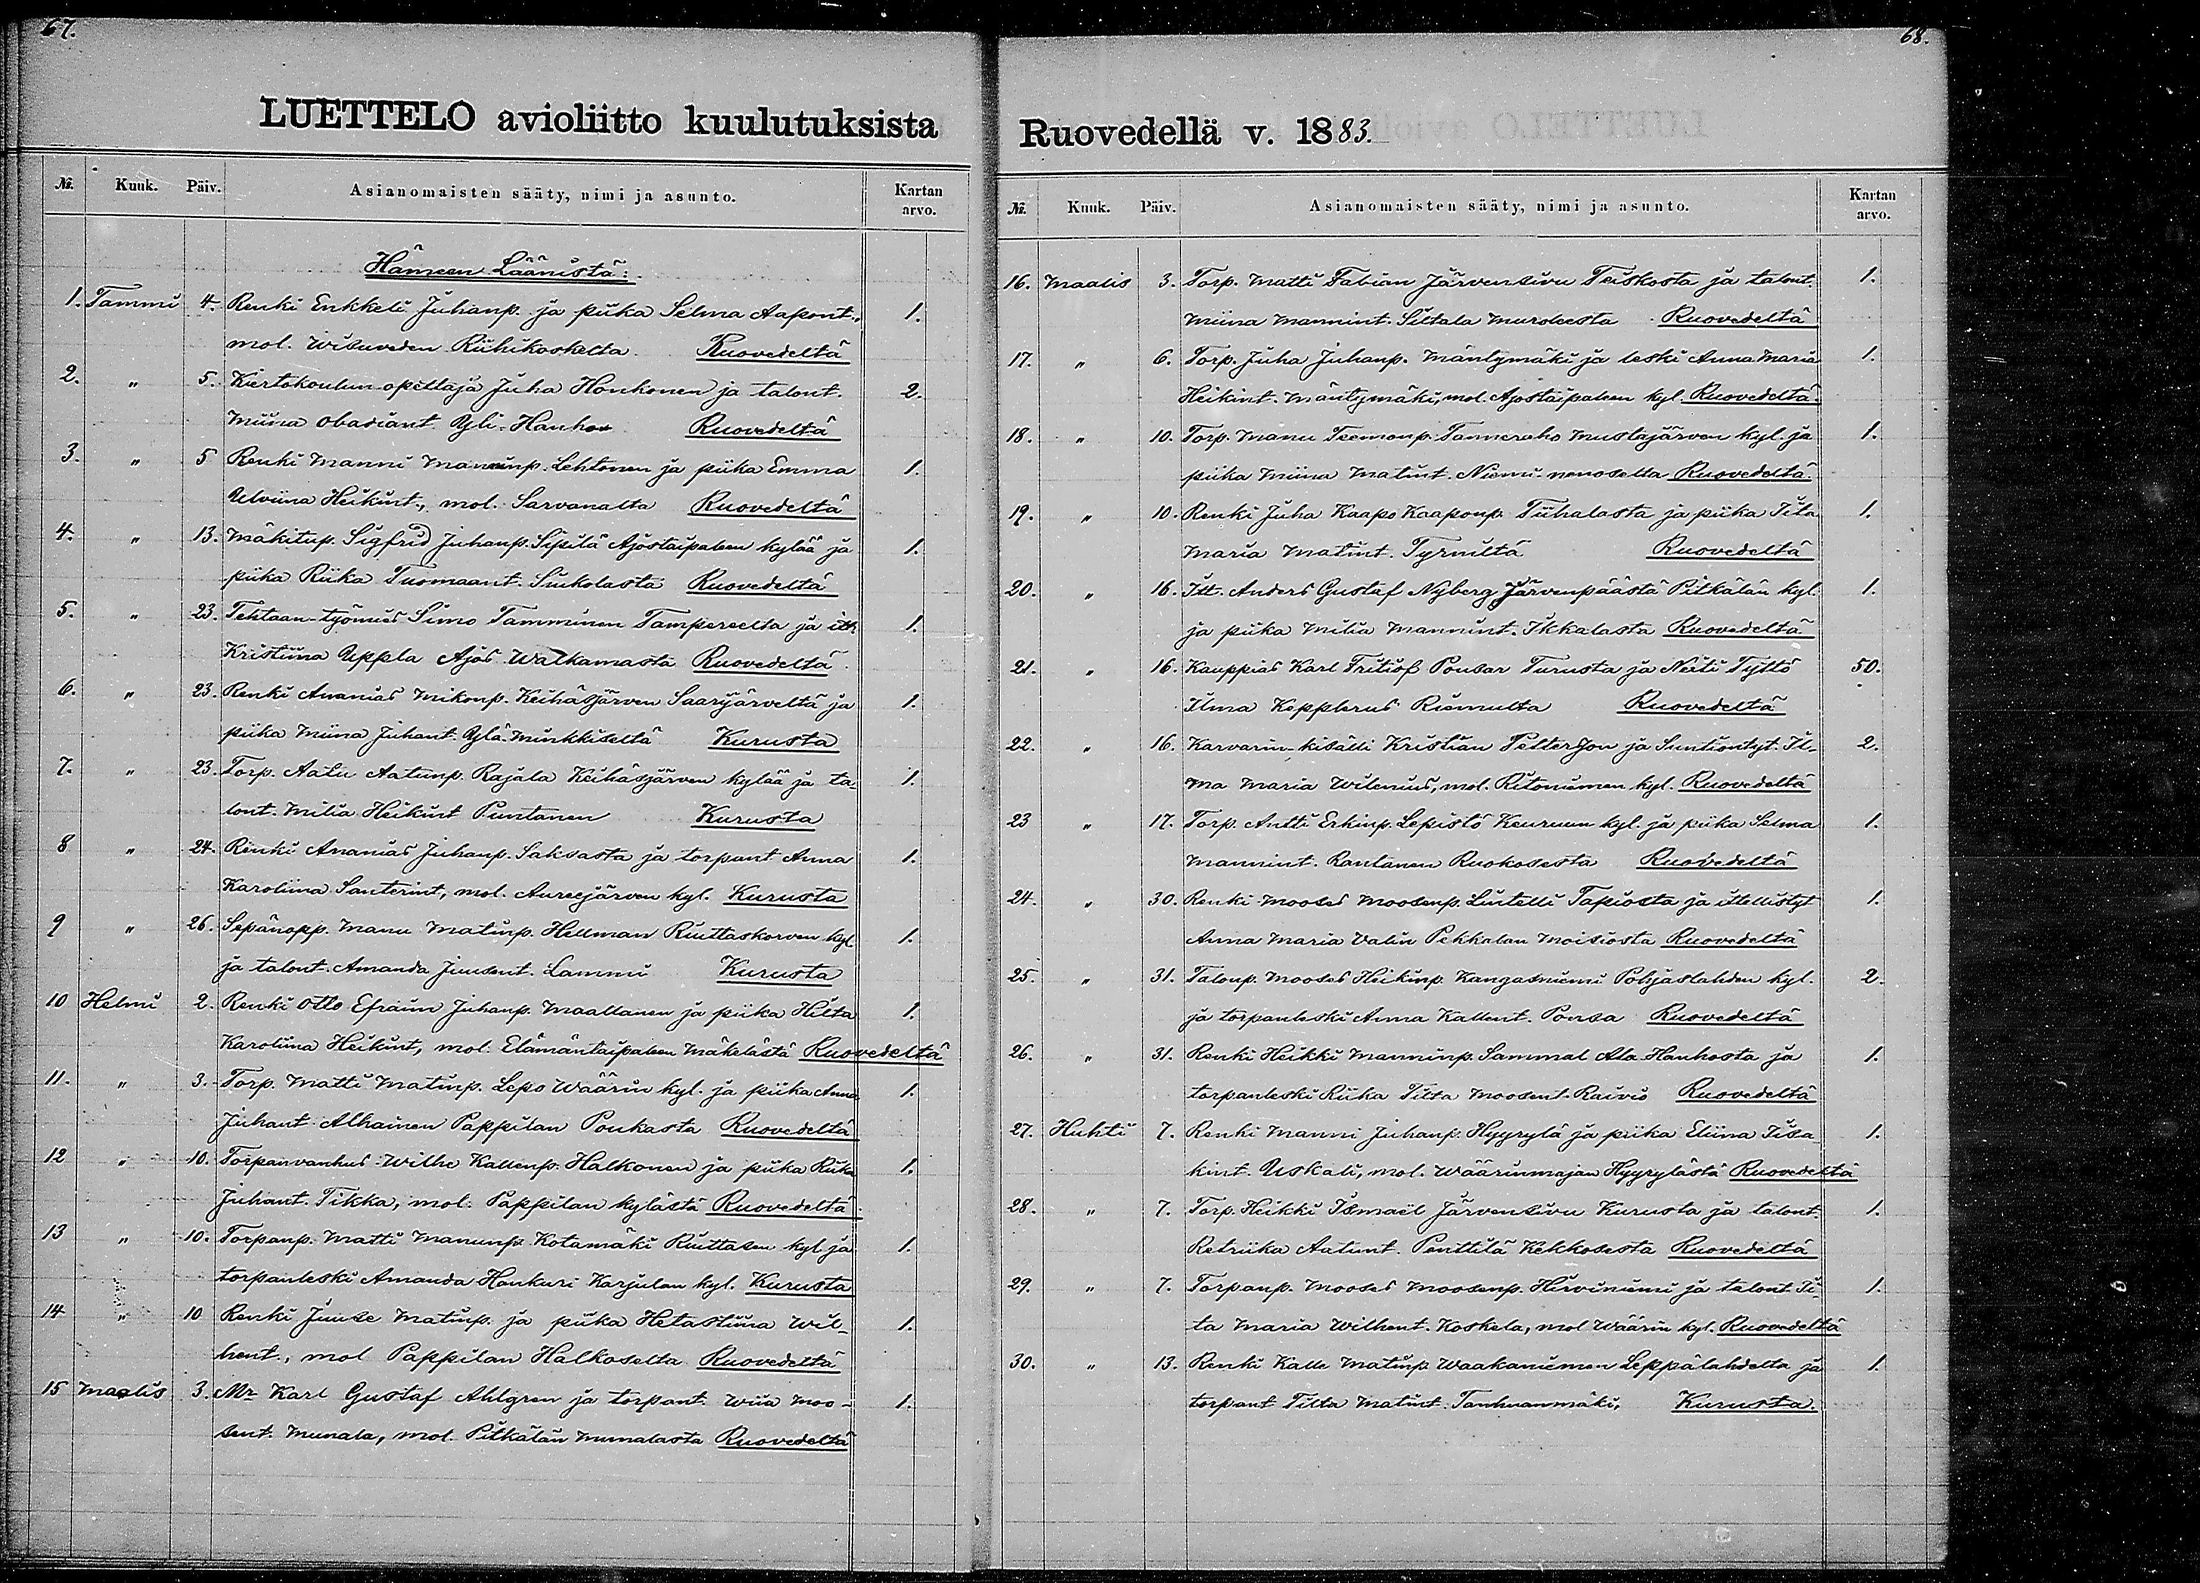 67.
LUETTELO avioliitto kuulutuksista
№. Kuuk. Päiv. Asianomaisten sääty, nimi ja asunto. Kartan arvo.
Hämeen Läänistä:
1. Tammi 4. Renki Enkkeli Juhanp. ja piika Selma Aapont., 1.
mol. Wisuveden Riihikoskelta. Ruovedeltä
2. " 5. Kiertokoulun opettaja Juha Honkonen ja talont. 2.
Miina Obadiant. Yli-Hanho Ruovedeltä
3. " 5 Renki Manni Manninp. Lehtonen ja piika Emma 1.
Ulviina Heikint., mol. Sarvanalta Ruovedeltä
4. " 13. Mäkitup. Sigfrid Juhanp. Sipilä Ajostaipaleen kylää ja 1.
piika Riika Tuomaant. Siukolasta Ruovedeltä
5. " 23. Tehtaan-työmies Simo Tamminen Tampereelta ja itt. 1.
Kristiina Uppla Ajos Walkamasta Ruovedeltä.
6. " 23. Renki Ananias Mikonp. Keihäsjärven Saarijärveltä ja 1.
piika Miina Juhant. Ylä-Minkkiseltä Kurusta
7. " 23. Torp. Aatu Aatunp. Rajala Keihäsjärven kylää ja ta- 1.
lont. Milia Heikint Puntanen Kurusta
8 " 24. Renki Ananias Juhanp. Saksasta ja torpant Anna 1.
Karoliina Santerint, mol. Aureejärven kyl. Kurusta
9 " 26. Sepänopp. Manu Matinp. Hellman Riuttaskorven kyl. 1.
ja talont. Amanda Juusent. Lammi Kurusta
10 Helmi 2. Renki Otto Efraim Juhanp. Maaltanen ja piika Hilta 1.
Karoliina Heikint, mol. Elämäntaipaleen Mäkelästä Ruovedeltä
11. " 3. Torp. Matti Matinp. Lepo Wäärin kyl. ja piika Anna 1.
Juhant Alhainen Pappilan Poukasta Ruovedeltä
12 " 10. Torpanvanhus Wilhe Kallenp. Halkonen ja piika Riika 1.
Juhant. Tikka, mol. Pappilan kylästä Ruovedeltä.
13 " 10. Torpanp. Matti Manunp. Kotamäki Riuttasen kyl ja 1.
torpanleski Amanda Hankuri Karjulan kyl. Kurusta
14 " 10 Renki Juuse Matinp. ja piika Hetastiina Wil- 1.
hent., mol Pappilan Halkoselta Ruovedeltä
15 Maalis 3. Mr Karl Gustaf Ahlgren ja torpant. Wiia Moo- 1.
sent. Munala, mol. Pitkälän Munalasta Ruovedeltä
68.
Ruovedellä v. 1883.
№. Kuuk. Päiv. Asianomaisten sääty, nimi ja asunto. Kartan arvo.
16. Maalis 3. Torp. Matti Fabian Järvensivu Teiskosta ja talont. 1.
Miina Mannint. Siltala Muroleesta Ruovedeltä
17. " 6. Torp. Juha Juhanp. Mäntymäki ja leski Anna Maria 1.
Heikint. Mäntymäki, mol. Ajostaipaleen kyl. Ruovedeltä.
18. " 10. Torp. Manu Teemonp. Tanneraho Mustajärven kyl. ja 1.
piika Miina Matint. Niemi-nenoselta Ruovedeltä.
19. " 10. Renki Juha Kaapo Kaaponp. Tiihalasta ja piika Iita 1.
Maria Matint. Tyrniltä Ruovedeltä
20. " 16. Itt. Anders Gustaf Nyberg Järvenpäästä Pitkälän kyl. 1.
ja piika Milia Mannint. Ikkalasta Ruovedeltä
21. " 16. Kauppias Karl Fritiof Ponsar Turusta ja Neiti Tyttö 50.
Ilma Kepplerus Riemulta Ruovedeltä
22. " 16. Karvarin-kisälli Kristian Petterson ja Suntiontyt. Il- 2.
ma Maria Wilenius, mol. Ritoniemen kyl. Ruovedeltä
23 " 17. Torp. Antti Erkinp. Lepistö Keuruun kyl. ja piika Selma 1.
Mannint. Rantanen Ruokosesta Ruovedeltä
24. " 30. Renki Mooses Moosenp. Lintelli Tapiosta ja itellistyt 1.
Anna Maria Valin Pekkalan Moisiosta Ruovedeltä
25. " 31. Talonp. Mooses Heikinp. Kangasniemi Pohjaslahden kyl. 2.
ja torpanleski Anna Kallent. Ponsa Ruovedeltä
26. " 31. Renki Heikki Manninp. Sammal Ala-Hanhosta ja 1.
torpanleski Riika Titta Moosent. Raivio Ruovedeltä
27. Huhti 7. Renki Manni Juhanp. Hyyrylä ja piika Eliina Iisa- 1.
kint. Uskali, mol. Wäärinmajan Hyyrylästä Ruovedeltä
28. " 7. Torp. Heikki Ismaël Järvensivu Kurusta ja talont. 1.
Retriika Aatunt. Penttilä Kekkosesta Ruovedeltä
29. " 7. Torpanp. Mooses Moosenp. Hirviniemi ja talont Ii- 1.
ta Maria Wilhent. Koskela, mol Wäärin kyl. Ruovedeltä
30. " 13. Renki Kalle Matinp Waakaniemen Leppälahdelta ja 1.
torpant Tilta Matint. Tanhuanmäki, Kurusta.